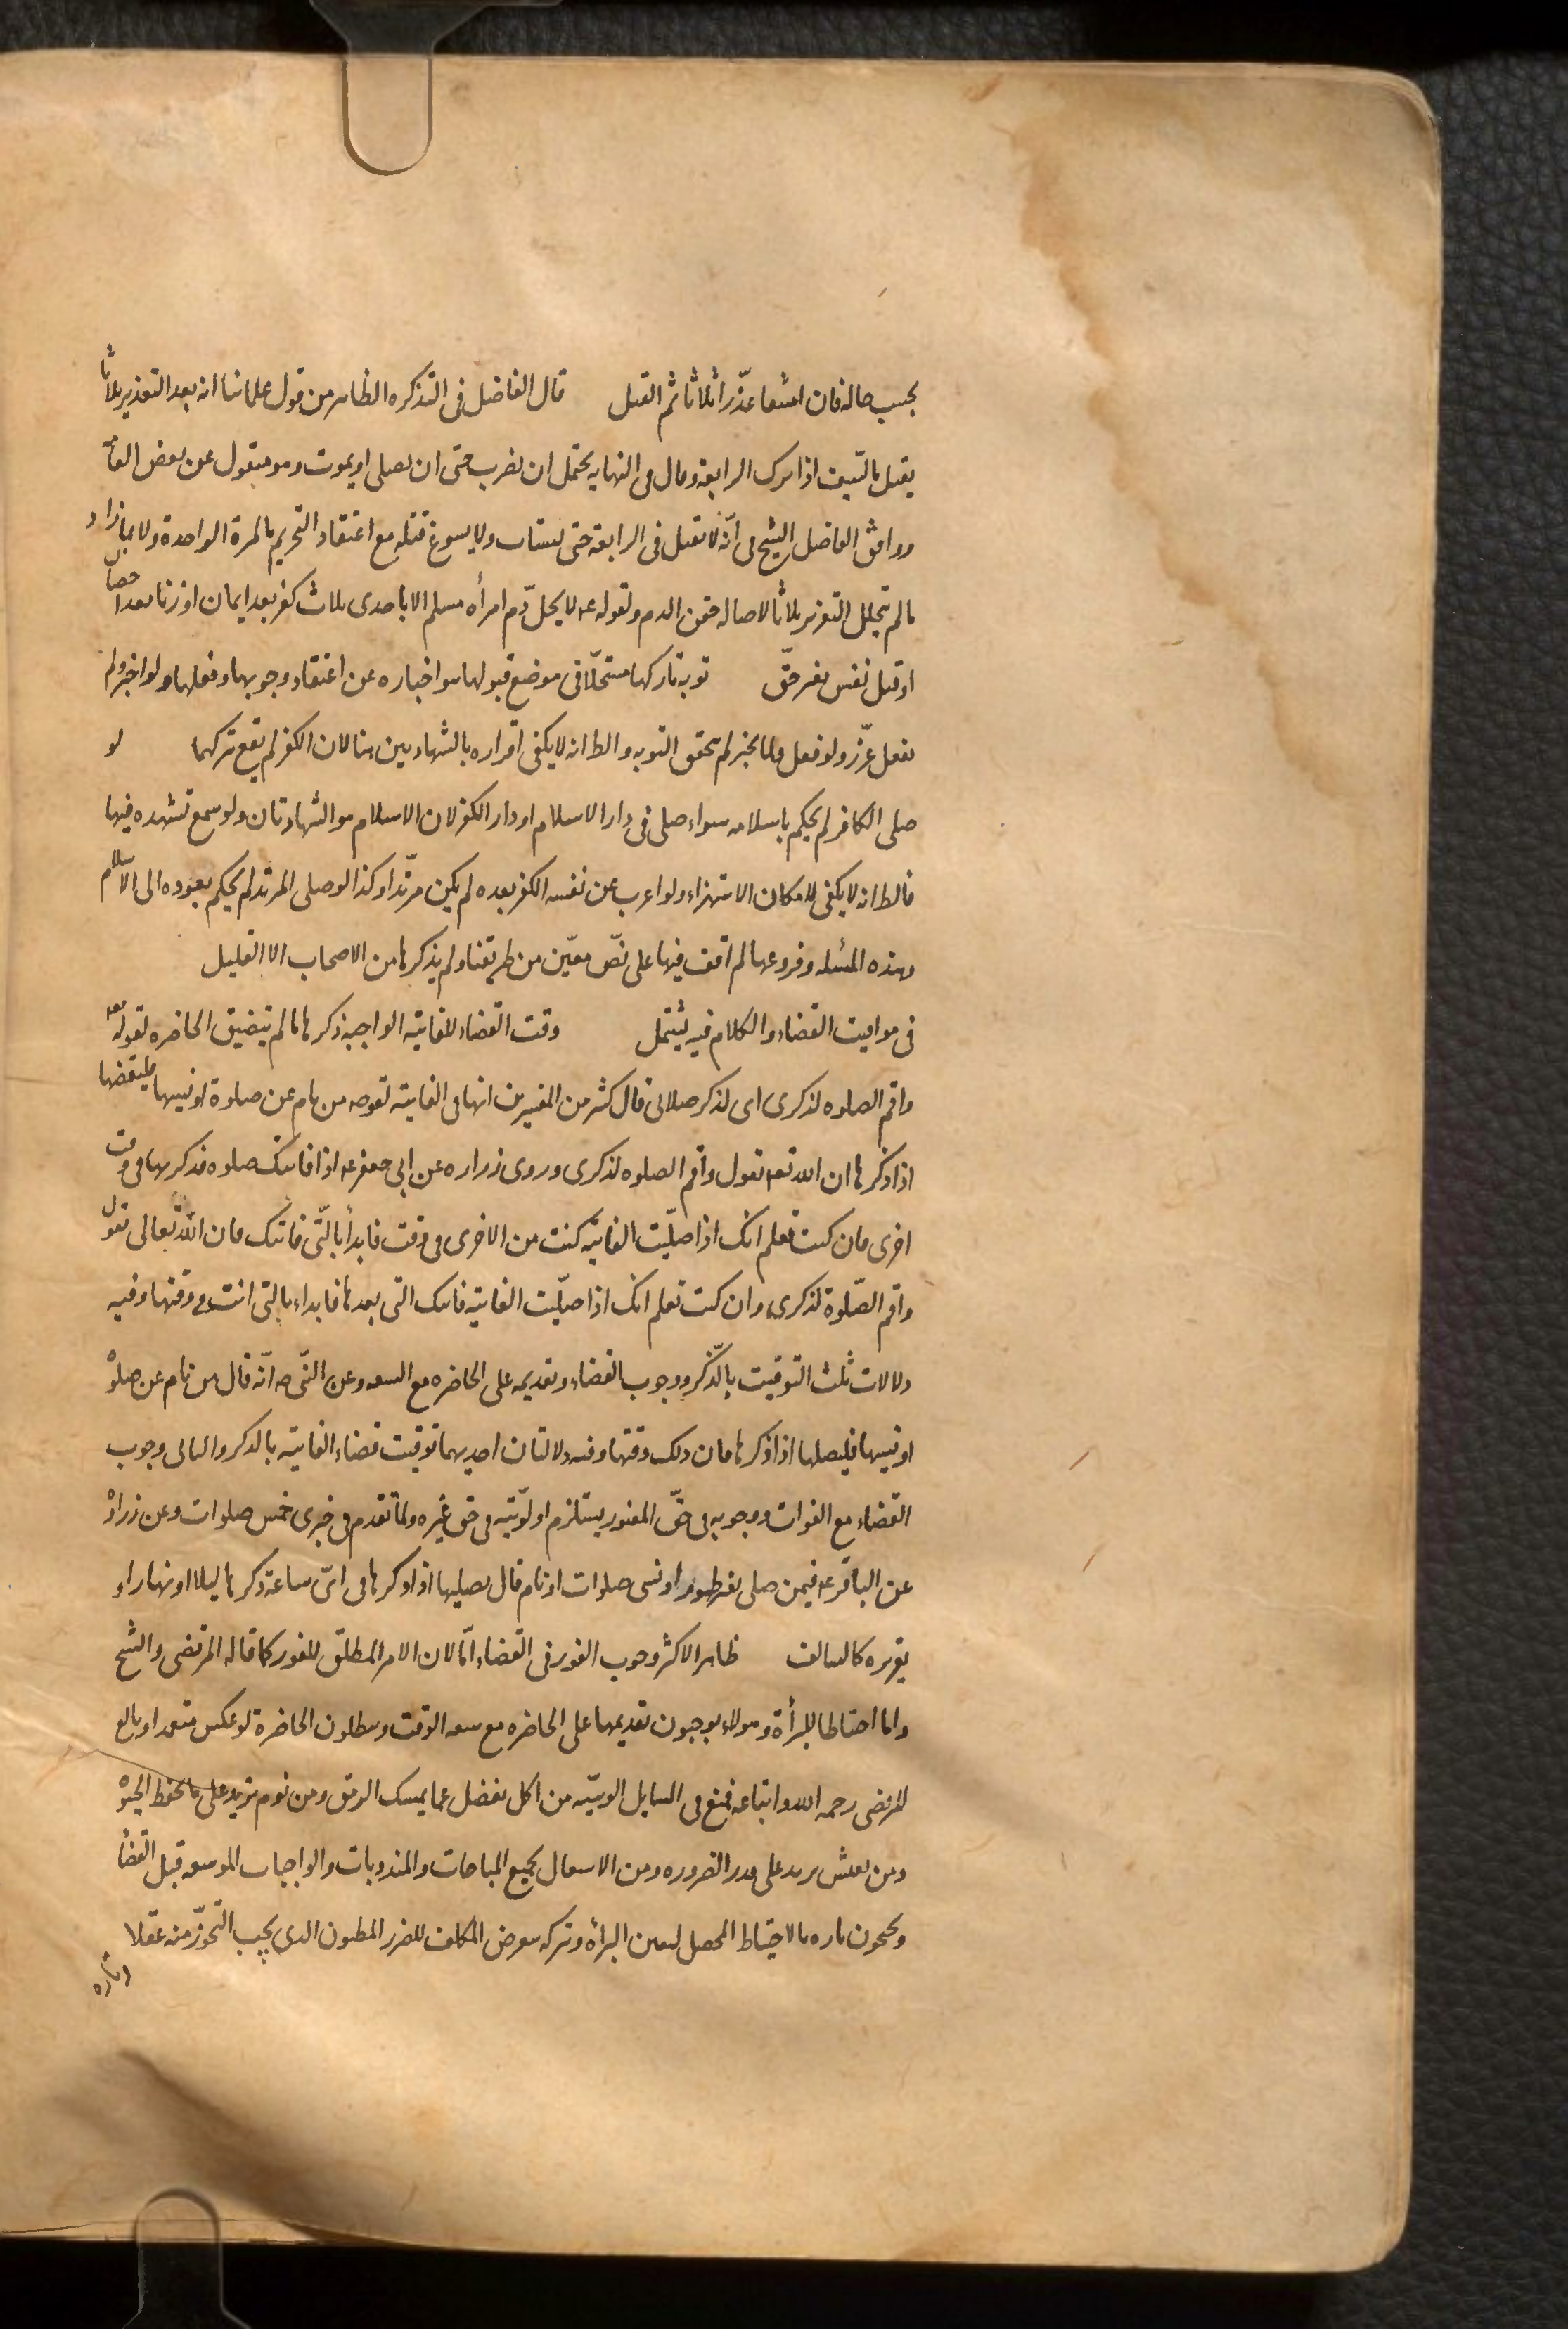 بحسب حاله فان امتنعا عذّرا ثلاثا ثم القتل قال الفاضل فى التذكره الظاهر من قول علمائنا انه بعد التعذير ثلاثا
يقتل بالسّيف اذا ترك الرابعة وقال فى النهايه يحتمل ان يضرب حتى ان يصلى او يموت وهو منقول عن بعض العامّة
ووافق الفاضل الشيخ فى انّه لا يقتل فى الرابعة حتى يستتاب ولا يسوغ قتله مع اعتقاد التحريم بالمرة الواحدة ولا بما زاد
ما لم يتخلل التعزير ثلاثا لاصاله حقن الدم ولقوله عه لا يحلّ دم امرأه مسلم الا باحدى ثلاث كفر بعد ايمان او زنا بعد احصان
او قتل نفس بغير حقّ توبه تاركها مستحلّا فى موضع قبولها هو اخباره عن اعتقاد وجوبها وفعلها ولو اخبر ولم
يفعل عزّر ولو فعل ولما يخبر لم تحقق التوبه والظ انه لا يكفى اقراره بالشهادتين هنا لان الكفر لم يقع بتركهما لو
صلى الكافر لم يحكم باسلامه سواء صلى فى دار الاسلام او دار الكفر لان الاسلام هو الشهادتان ولو سمع تشهده فيها
فالظ انه لا يكفى لامكان الاستهزاء ولو اعرب عن نفسه الكفر بعده لم يكن مرتّدا وكذا لو صلى المرتد لم يحكم بعوده الى الاسلام
وهذه المسئله وفروعها لم اقف فيها على نصّ معيّن من طريقنا ولم يذكرها من الاصحاب الا القليل
فى مواقيت القضاء والكلام فيه يشتمل وقت القضاء للفايتة الواجبة ذكرها ما لم يتضيق الحاضره لقوله تعه
واقم الصلوه لذكرى اى لذكر صلاتى قال كثير من المفسرين انها فى الفايتة لقوله صه من نام عن صلوة او نسيها فليقضها
اذا ذكرها ان الله تعه يقول واقم الصلوه لذكرى وروى زراره عن ابى جعفر عه اذا فاتتك صلوه فذكرتها فى وقت
اخرى فان كنت تعلم انك اذا صلّيت الفايتة كنت من الاخرى فى وقت فابدأ بالّتى فاتتك فان اللّه تعالى يقول
واقم الصّلوة لذكرى وان كنت تعلم انك اذا صلّيت الفايتة فاتتك التى بعدها فابداء بالتى انت فى وقتها وفيه
دلالات ثلث التوقيت بالّذكر ووجوب القضاء وتقديمه على الحاضره مع السعه وعن النّبى صه انّه قال من نام عن صلوة
او نسيها فليصلها اذا ذكرها فان ذلك وقتها وفيه دلالتان احديهما توقيت قضاء الفايتة بالذكر والثانى وجوب
القضاء مع الفوات ووجوبه فى حقّ المعذور يستلزم اولوّيته فى حق غيره ولما تقدم فى خبرى خمس صلوات وعن زرارة
عن الباقر عه فيمن صلى بغير طهور او نسى صلوات او نام قال يصليها اذا ذكرها فى اىّ ساعة ذكرها ليلا او نهارا و
يقرره كالسالف ظاهر الاكثر وجوب الفور فى القضاء امّا لان الامر المطلق للفور كما قاله المرتضى والشيخ
واما احتياطا للبرأة وهولاء يوجبون تقديمها على الحاضره مع سعه الوقت ويبطلون الحاضرة لو عكس متعمدا وبالغ
المرتضى رحمه الله واتباعه فمنع فى المسايل الرسيّه من اكل يفضل عما يمسك الرمق ومن نوم يزيد على ما يحفظ الحيوة
ومن تعيش يزيد على قدر الضروره ومن الاشتغال بجميع المباحات والمندوبات والواجبات الموسعه قبل القضاء
ويحتجون تاره بالاحتياط المحصل ليقين البرأة وتركه معرض المكلف للضرر المظنون الذى يجب التحرّز منه عقلا
وتاره